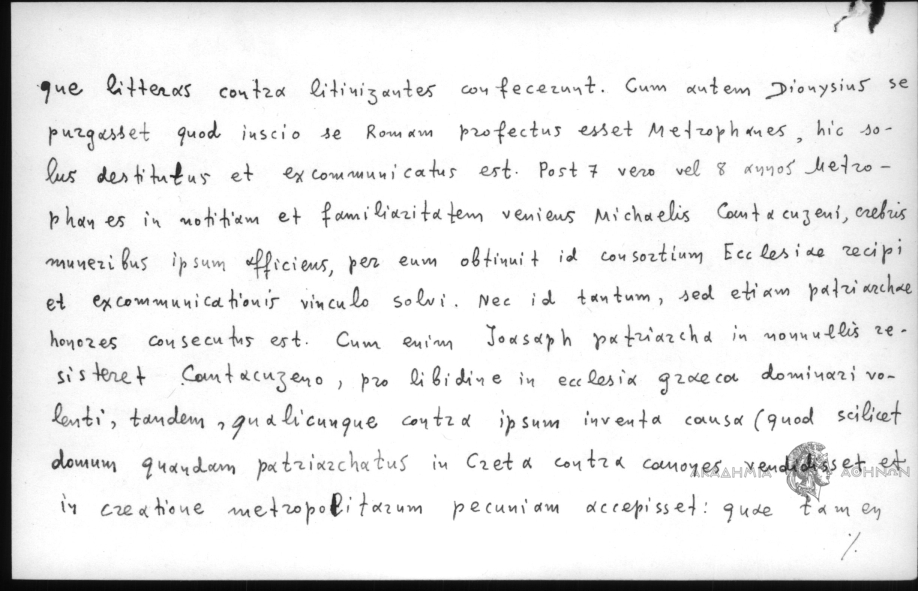 que litteras contra litinizantes confecerunt. Cum autem Dionysius se
purgasset quod inscio se Romam profectus esset Metrophanes, hic so-
lus destitutus et excommunicatus est. Post 7 vero vel 8 annos Metro-
phanes in notitiam et familiaritatem veniens Michaelis Cantacuzeni, crebris
muneribus ipsum afficiens, per eum obtinuit id consortium Ecclesiae recipi
et excommunicationis vinculo solvi. Nec id tantum, sed etiam patriarchae
honores consecutus est. Cum enim Joasaph patriarcha in nonnullis re-
sisteret Cantacuzeno, pro libidine in ecclesia graeca dominari vo-
lenti, tandem, qualicunque contra ipsum inventa causa (quod scilicet
domum quandam patriarchatus in Creta contra canones vendidisset et
in creatione metropolitarum pecuniam accepisset: quae tamen
ΑΚΑΔΗΜΙΑ ΑΘΗΝΩΝ
./.